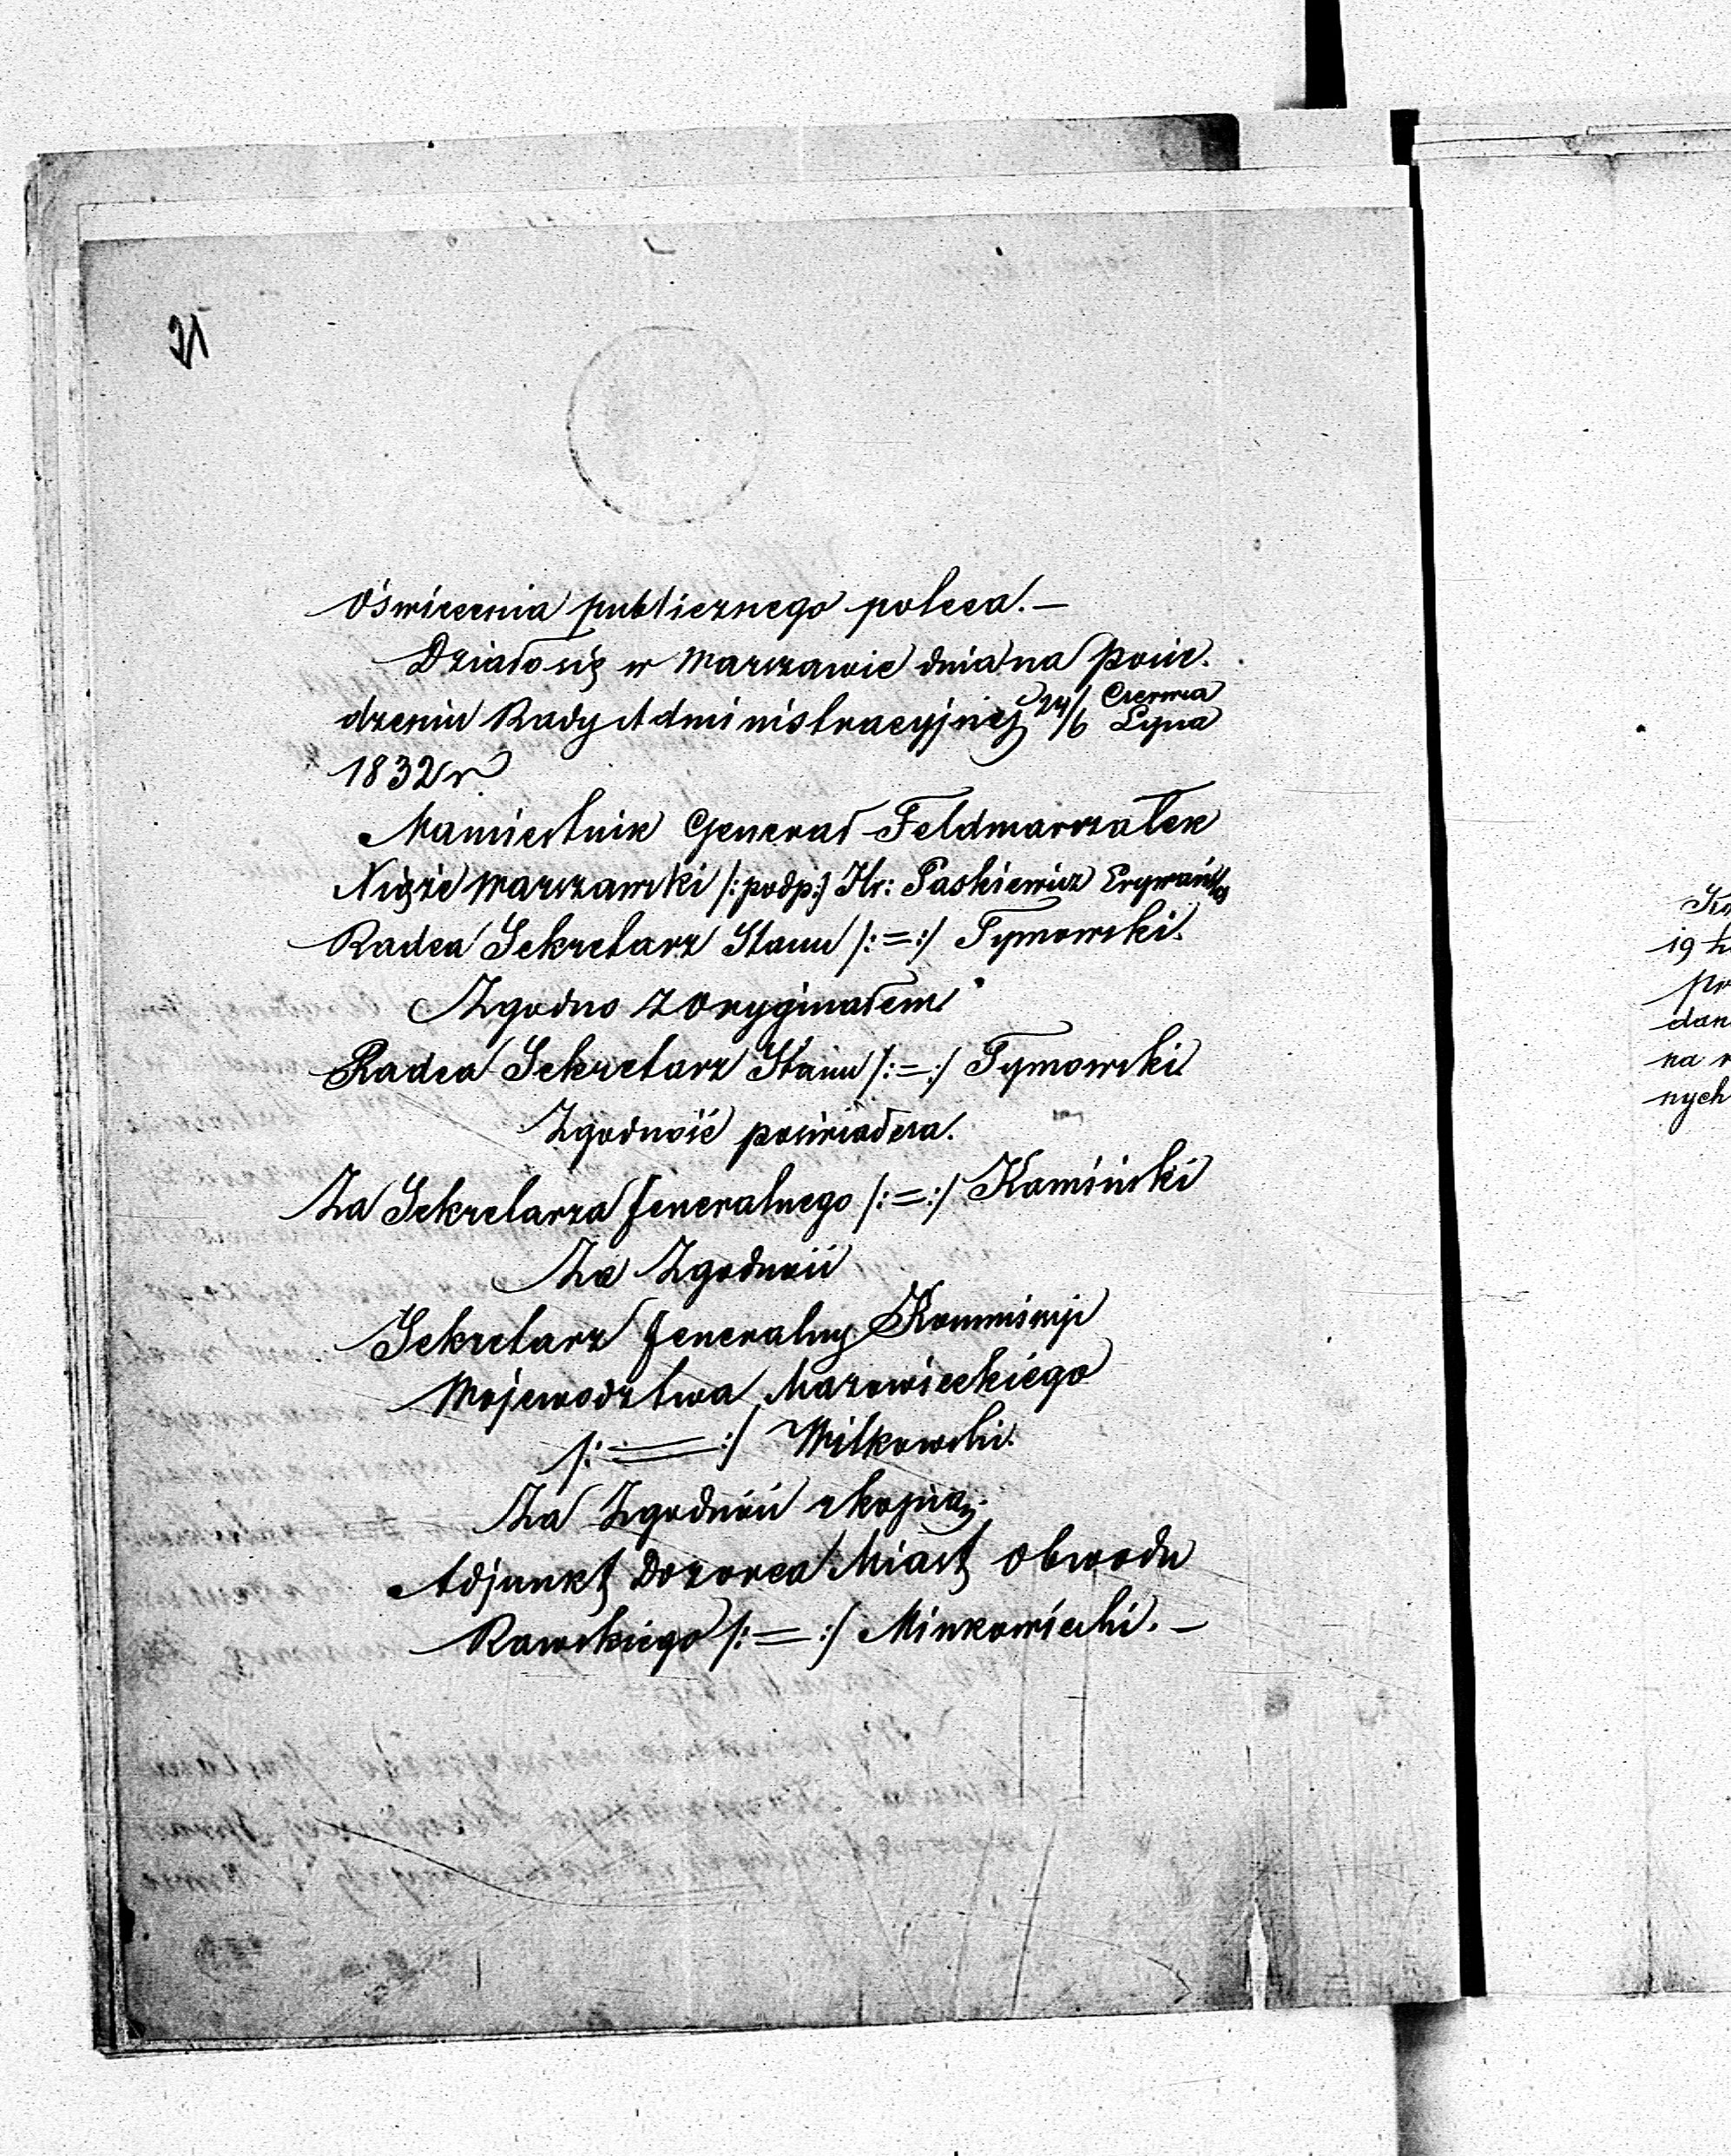 21
Oświecenia publicznego poleca. —
Działo się w Warszawie dnia na Posie-
dzeniu Rady Administracyjnej 24/6 Czerwca Lipca
1832 r.
Namiestnik Generał Feldmarszałek
Xiąże Warszawski /:podp:/ Hr: Paskiewicz Erywański
Radca Sekretarz Stanu /:=:/ Tymowski.
Zgodno z Oryginałem
Radca Sekretarz Stanu /:=:/ Tymowski
Zgodność poświadcza.
Za Sekretarza Jeneralnego /:=:/ Kamiński
Za Zgodność
Sekretarz Jeneralny Kommissyi
Wojewodztwa Mazowieckiego
/:=:/ Witkowski.
Za Zgodność z kopią
Adjunkt Dozorca Miast Obwodu
Rawskiego /:=:/ Minkowiecki. —
19
pr
dan
na
nych